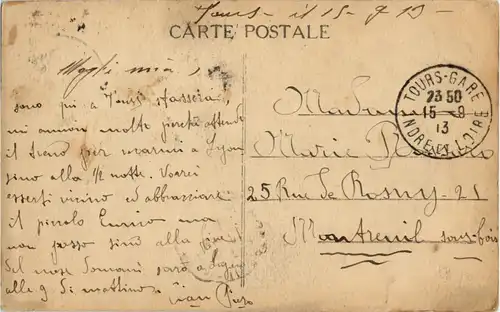 Tours - il 15 - 9 13 -
CARTE POSTALE
Moglie mia,
sono qui a Tours stassera,
mi annoio molto perchè attendo
il treno per recarmi a
sino alla 1/2 notte. Vorrei
esserti vicino ed abbracciare
il piccolo Enrico ma
non posso sino alla
del mese Domani sarò a
alle 9 di mattino
TOURS-GARE
23 50
15 - 9
13
INDRE ET LOIRE
Madame
Marie
25 Rue de Rosny - 25
Montreuil sous-bois